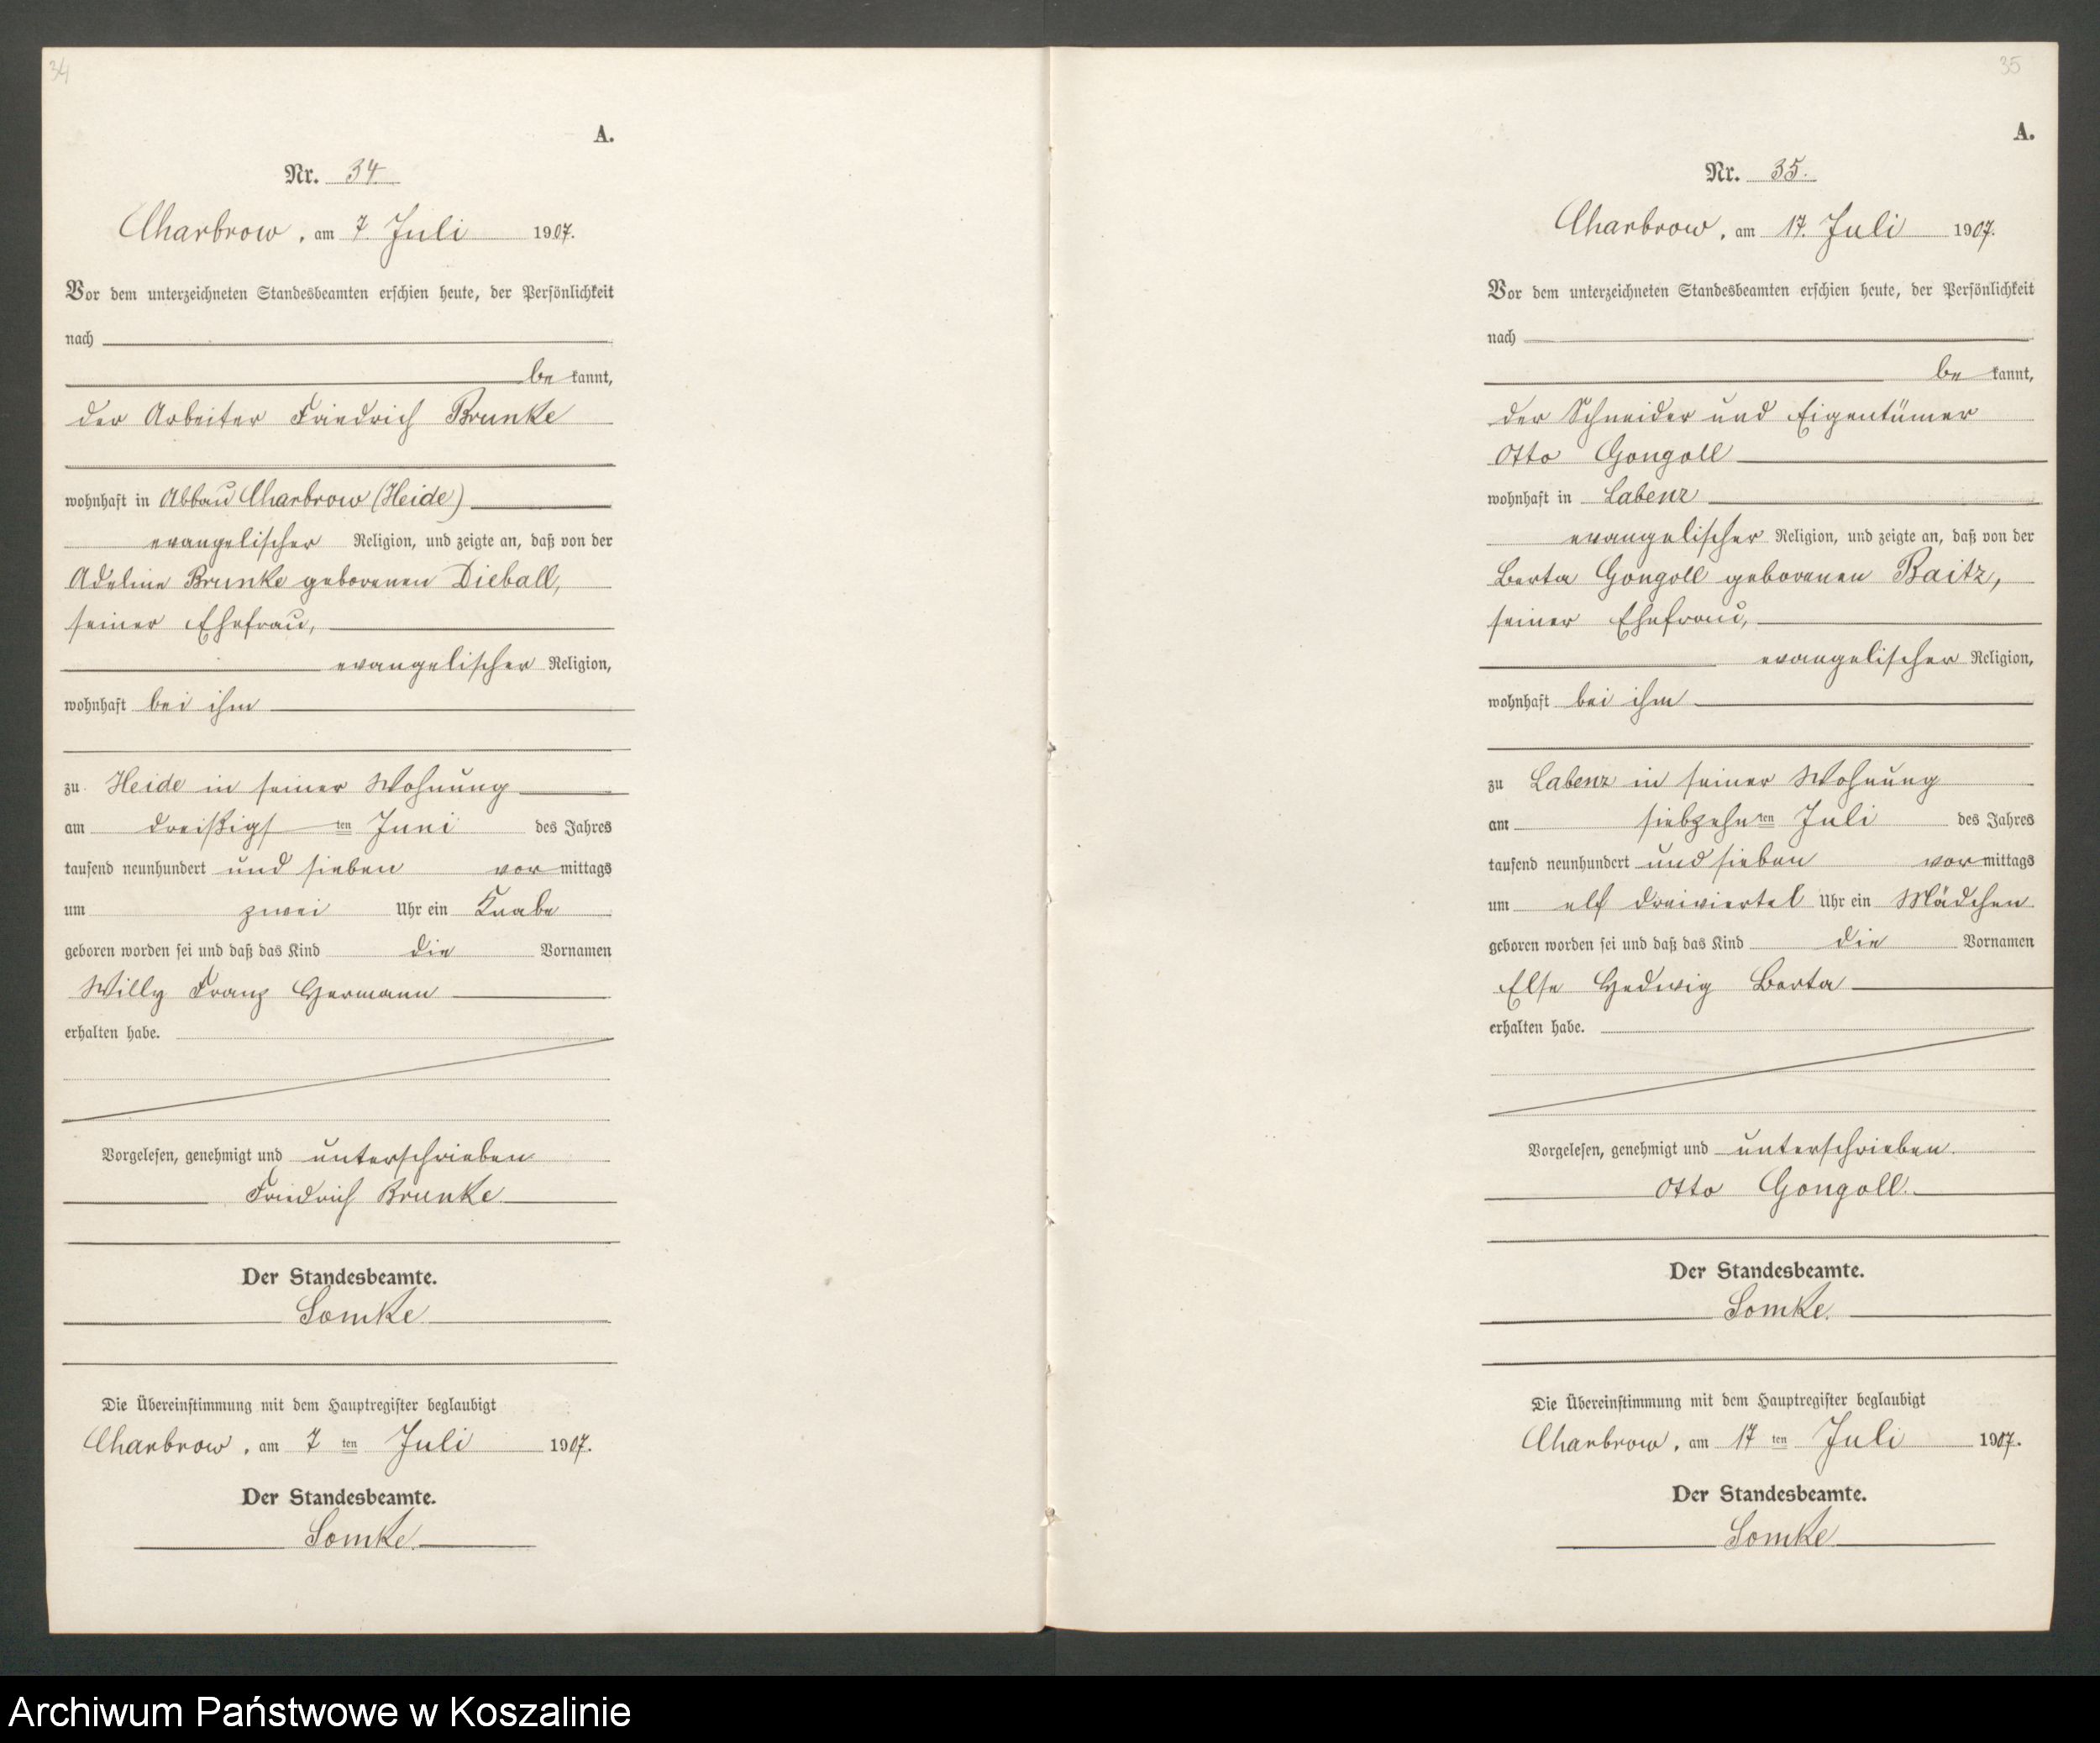 34
A.
Nr. 34
Charbrow, am 7. Juli 1907.
Vor dem unterzeichneten Standesbeamten erschien heute, der Persönlichkeit
nach
be kannt,
der Arbeiter Friedrich Brunke
wohnhaft in Abbau Charbrow (Heide)
evangelischer Religion, und zeigte an, daß von der
Adeline Brunke geborenen Dieball,
seiner Ehefrau,
evangelischer Religion,
wohnhaft bei ihm
zu Heide in seiner Wohnung
am dreißigs ten Juni des Jahres
tausend neunhundert und sieben vor mittags
um zwei Uhr ein Knabe
geboren worden sei und daß das Kind die Vornamen
Willy Franz Hermann
erhalten habe.
Vorgelesen, genehmigt und unterschrieben
Friedrich Brunke
Der Standesbeamte.
Lomke
Die Übereinstimmung mit dem Hauptregister beglaubigt
Charbrow, am 7 ten Juli 1907.
Der Standesbeamte.
Lomke.
35
A.
Nr. 35.
Charbrow, am 17. Juli 1907.
Vor dem unterzeichneten Standesbeamten erschien heute, der Persönlichkeit
nach
be kannt,
der Schneider und Eigentümer
Otto Gongoll
wohnhaft in Labenz
evangelischer Religion, und zeigte an, daß von der
Berta Gongoll geborenen Raitz,
seiner Ehefrau,
evangelischer Religion,
wohnhaft bei ihm
zu Labenz in seiner Wohnung
am siebzehn ten Juli des Jahres
tausend neunhundert und sieben vor mittags
um elf dreiviertel Uhr ein Mädchen
geboren worden sei und daß das Kind die Vornamen
Else Hedwig Berta
erhalten habe.
Vorgelesen, genehmigt und unterschrieben.
Otto Gongoll.
Der Standesbeamte.
Lomke.
Die Übereinstimmung mit dem Hauptregister beglaubigt
Charbrow, am 17 ten Juli 1907.
Der Standesbeamte.
Lomke
Archiwum Państwowe w Koszalinie